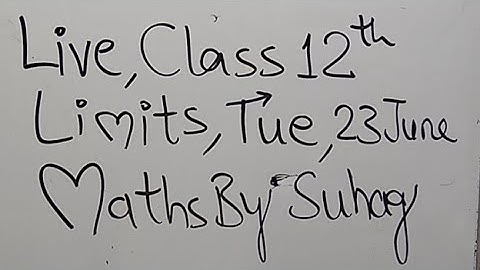 Live, Class 12th
Limits, Tue, 23 June
Maths By Suhag